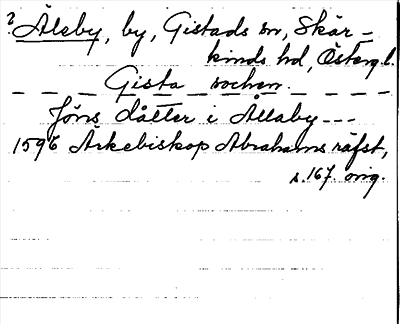 ? Åleby, by, Gistads sn, Skär-
kinds hd, Österg.l.
Gista sochen.
Jöns dåtter i Ållaby---
1596 Ärkebiskop Abrahams räfst,
s. 167. orig.